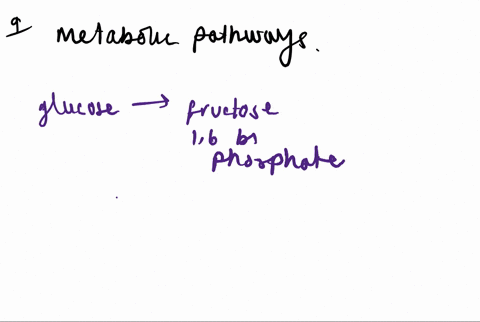 9 metabolic pathways.
glucose → fructose
1,6 bis
phosphate